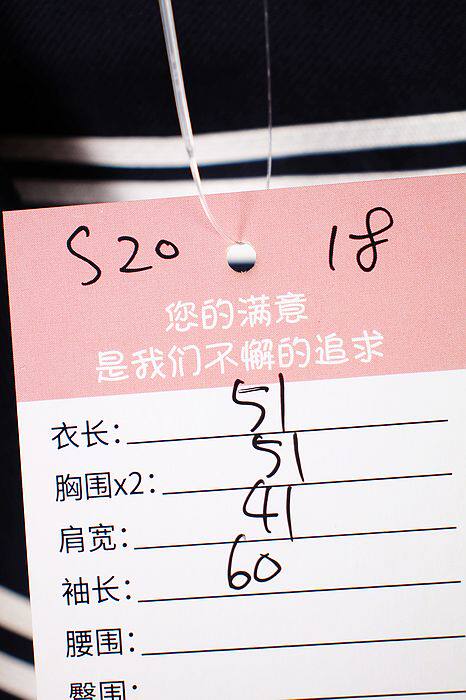 S20 18
您的满意
是我们不懈的追求
衣长: 51
胸围x2: 51
肩宽: 41
袖长: 60
腰围:
臀围: